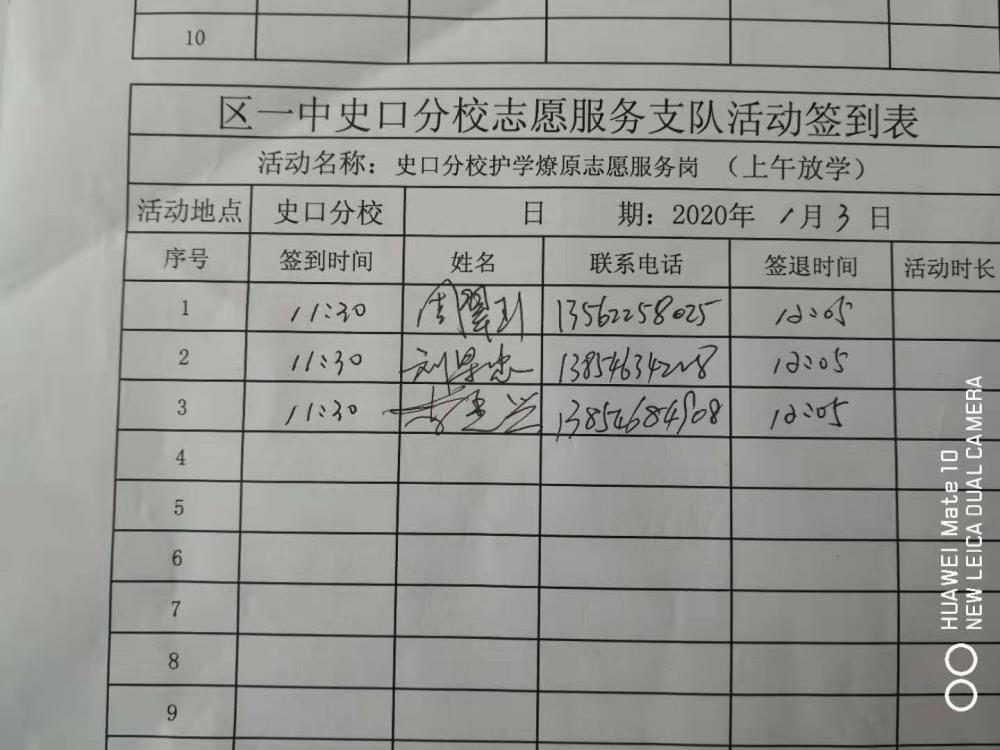 10
区一中史口分校志愿服务支队活动签到表
活动名称：史口分校护学燎原志愿服务岗 （上午放学）
活动地点 史口分校 日 期：2020年 1月3日
序号 签到时间 姓名 联系电话 签退时间 活动时长
1 11:30 13562258025 12:05
2 11:30 12:05
3 11:30 13854684908 12:05
4
5
6
7
8
9
HUAWEI Mate 10
NEW LEICA DUAL CAMERA